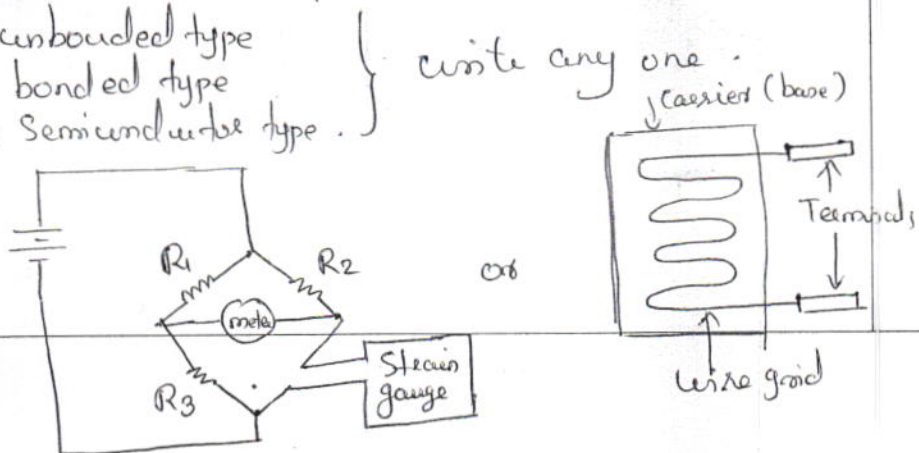 unbouded type
bonded type
Semiconductor type.
write any one.
Carrier (base)
Terminals
R1
R2
or
meter
R3
Strain
gauge
wire grid